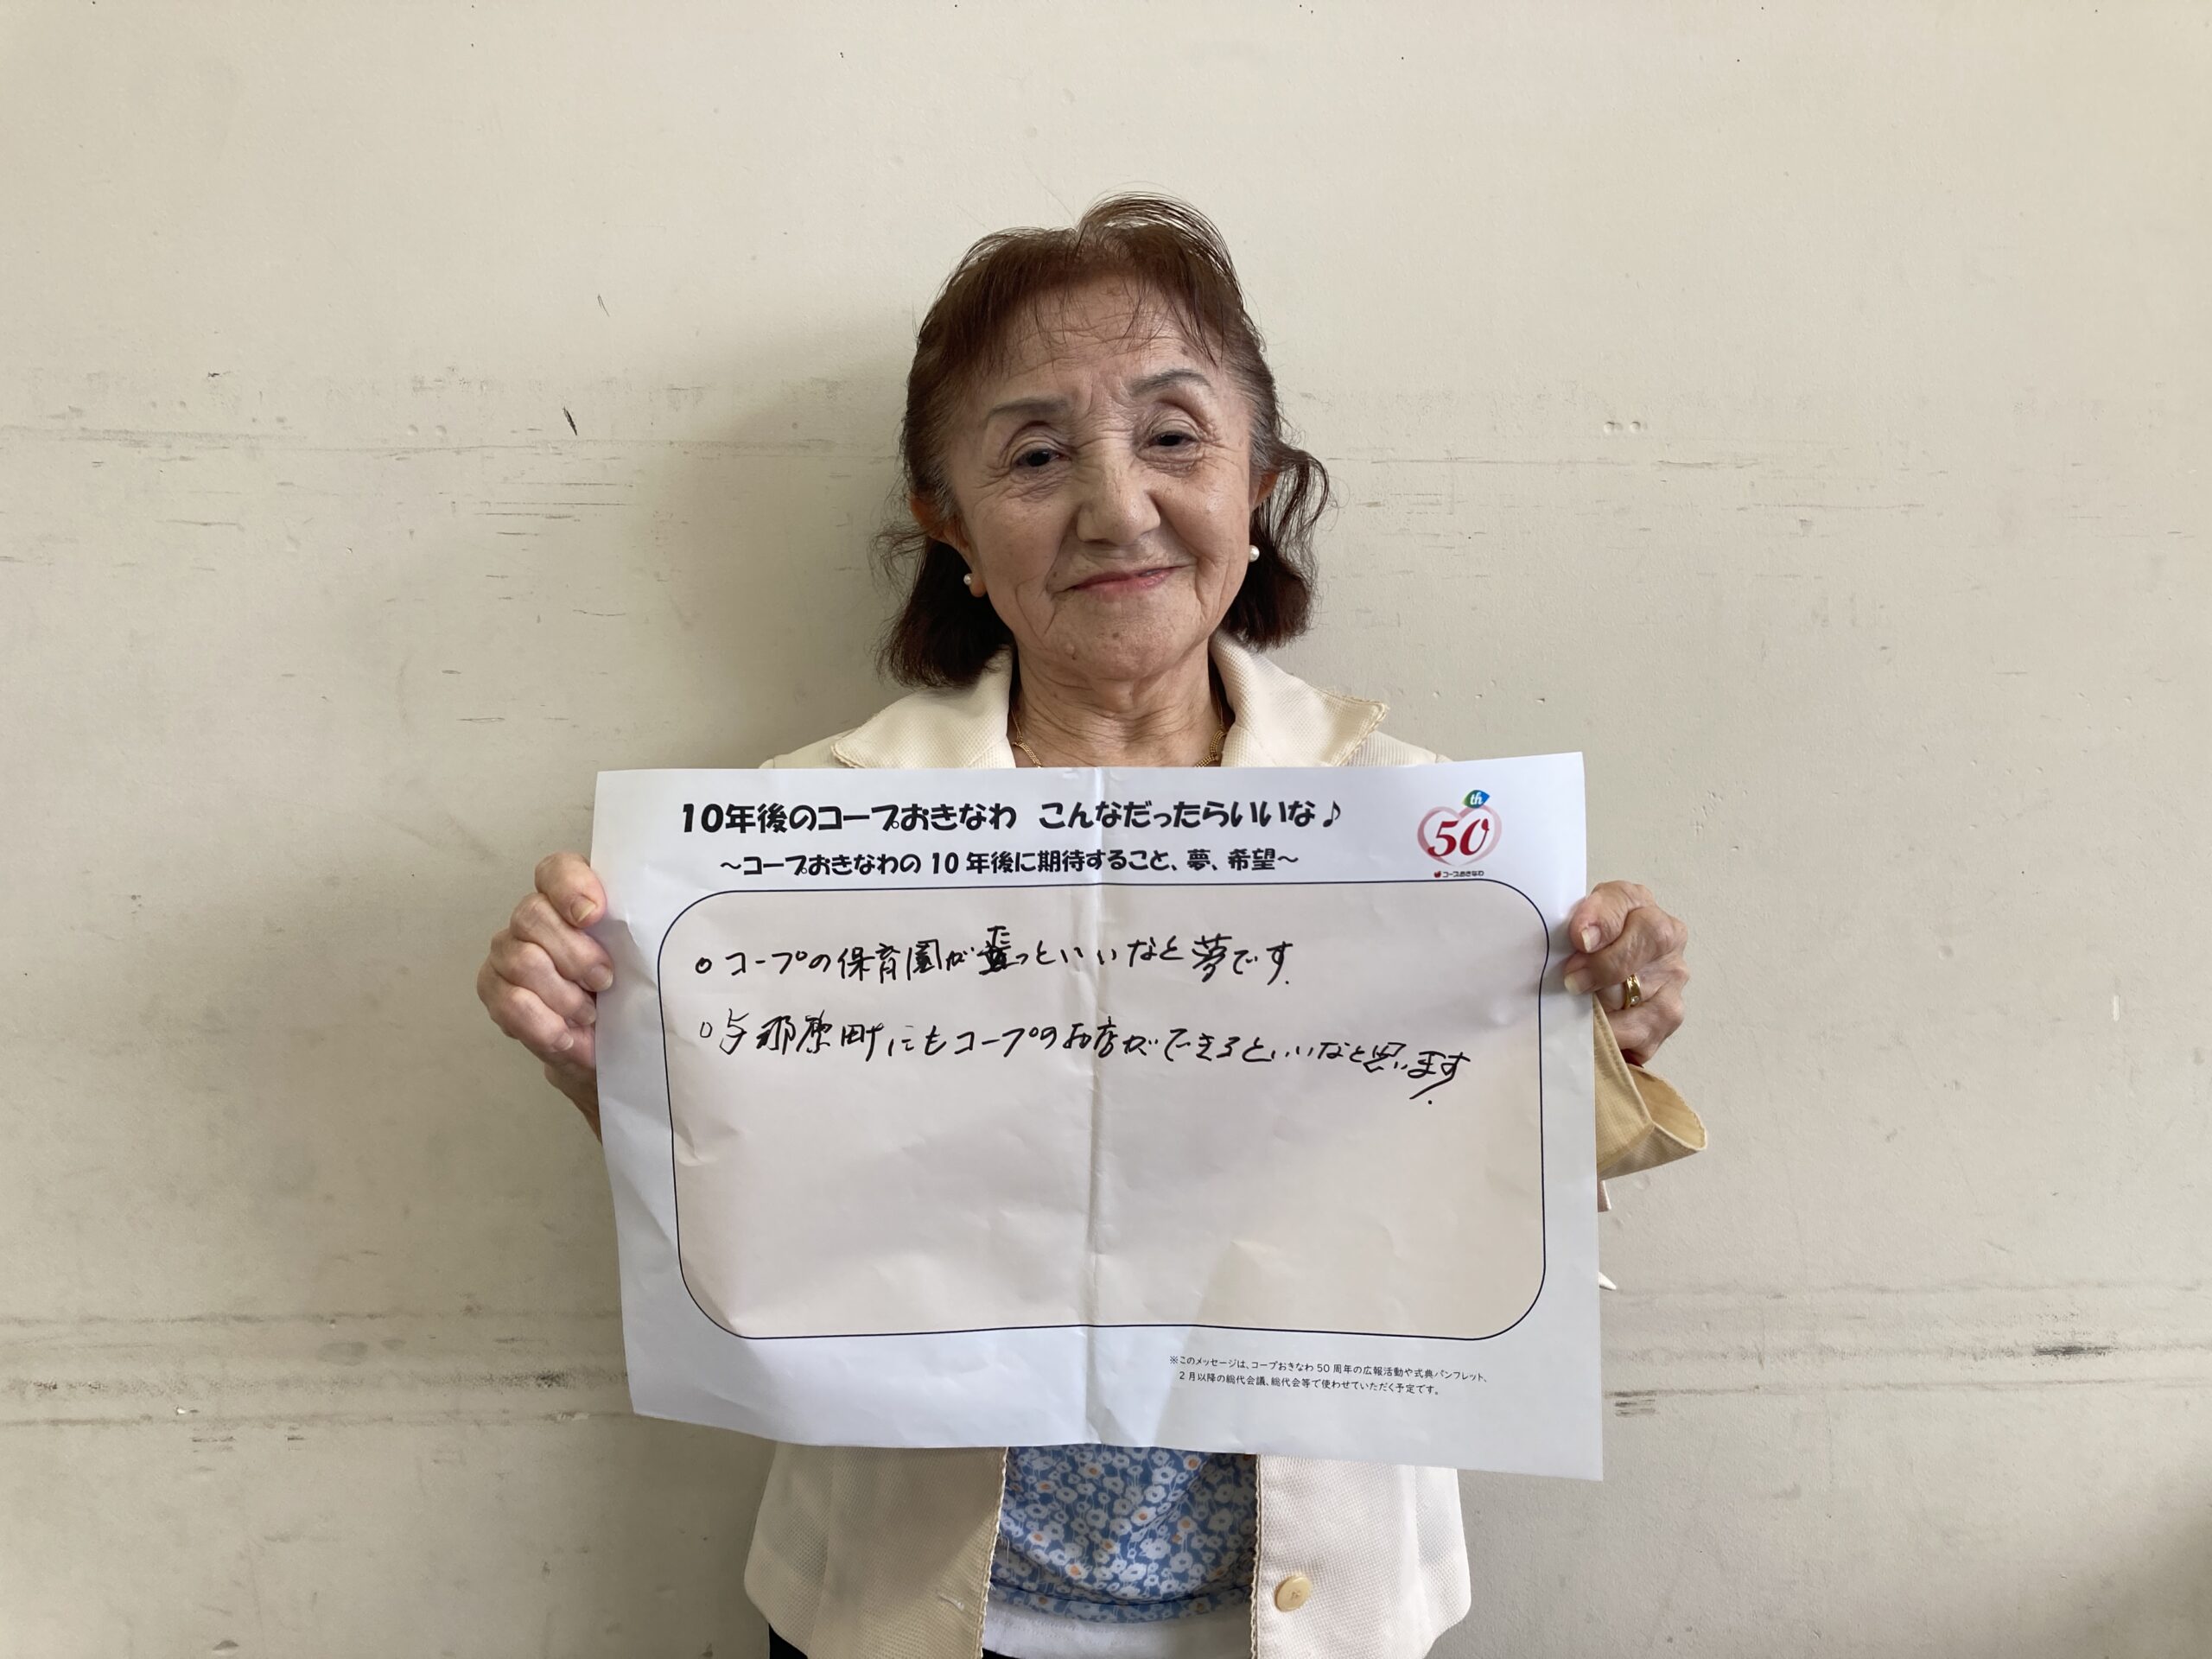 10年後のコープおきなわ こんなだったらいいな♪
～コープおきなわの10年後に期待すること、夢、希望～
th
50
コープおきなわ
○コープの保育園が建っといいなと夢です.
○与那原町にもコープのお店ができるといいなと思います.
※このメッセージは、コープおきなわ50周年の広報活動や式典パンフレット、
2月以降の総代会議、総代会等で使わせていただく予定です。